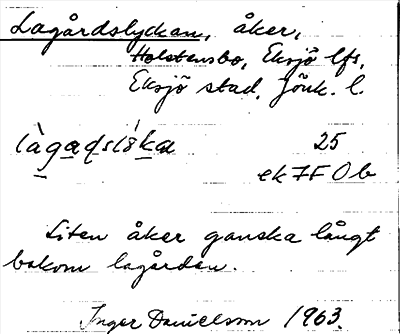 Lagårdslyckan, åker,
Holstensbo, Eksjö lfs,
Eksjö stad, Jönk. l.
25
ek 7F 0 b
Liten åker ganska långt
bakom lagården.
Inger Danielsson 1963.